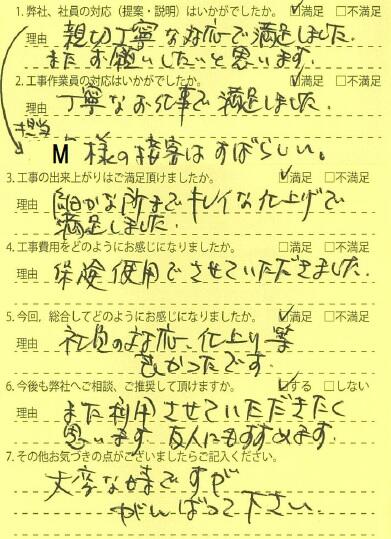 1. 弊社、社員の対応（提案・説明）はいかがでしたか。 ☑満足 □不満足
理由 親切丁寧な対応で満足しました。
また お願いしたいと思います.
2. 工事作業員の対応はいかがでしたか。 ☑満足 □不満足
理由 丁寧なお仕事で満足しました.
担当
M 様の接客はすばらしい。
3. 工事の出来上がりはご満足頂けましたか。 ☑満足 □不満足
理由 細かな所まで キレイな仕上げで
満足しました.
4. 工事費用をどのようにお感じになりましたか。 □満足 □不満足
理由 保険使用でさせていただきました.
5. 今回、総合してどのようにお感じになりましたか。 ☑満足 □不満足
理由 社員の対応、仕上り等
良かったです.
6. 今後も弊社へご相談、ご推奨して頂けますか。 ☑する □しない
理由 また利用させていただきたく
思います 友人にもすすめます.
7. その他お気づきの点がございましたらご記入ください。
大変な時ですが
がんばって下さい